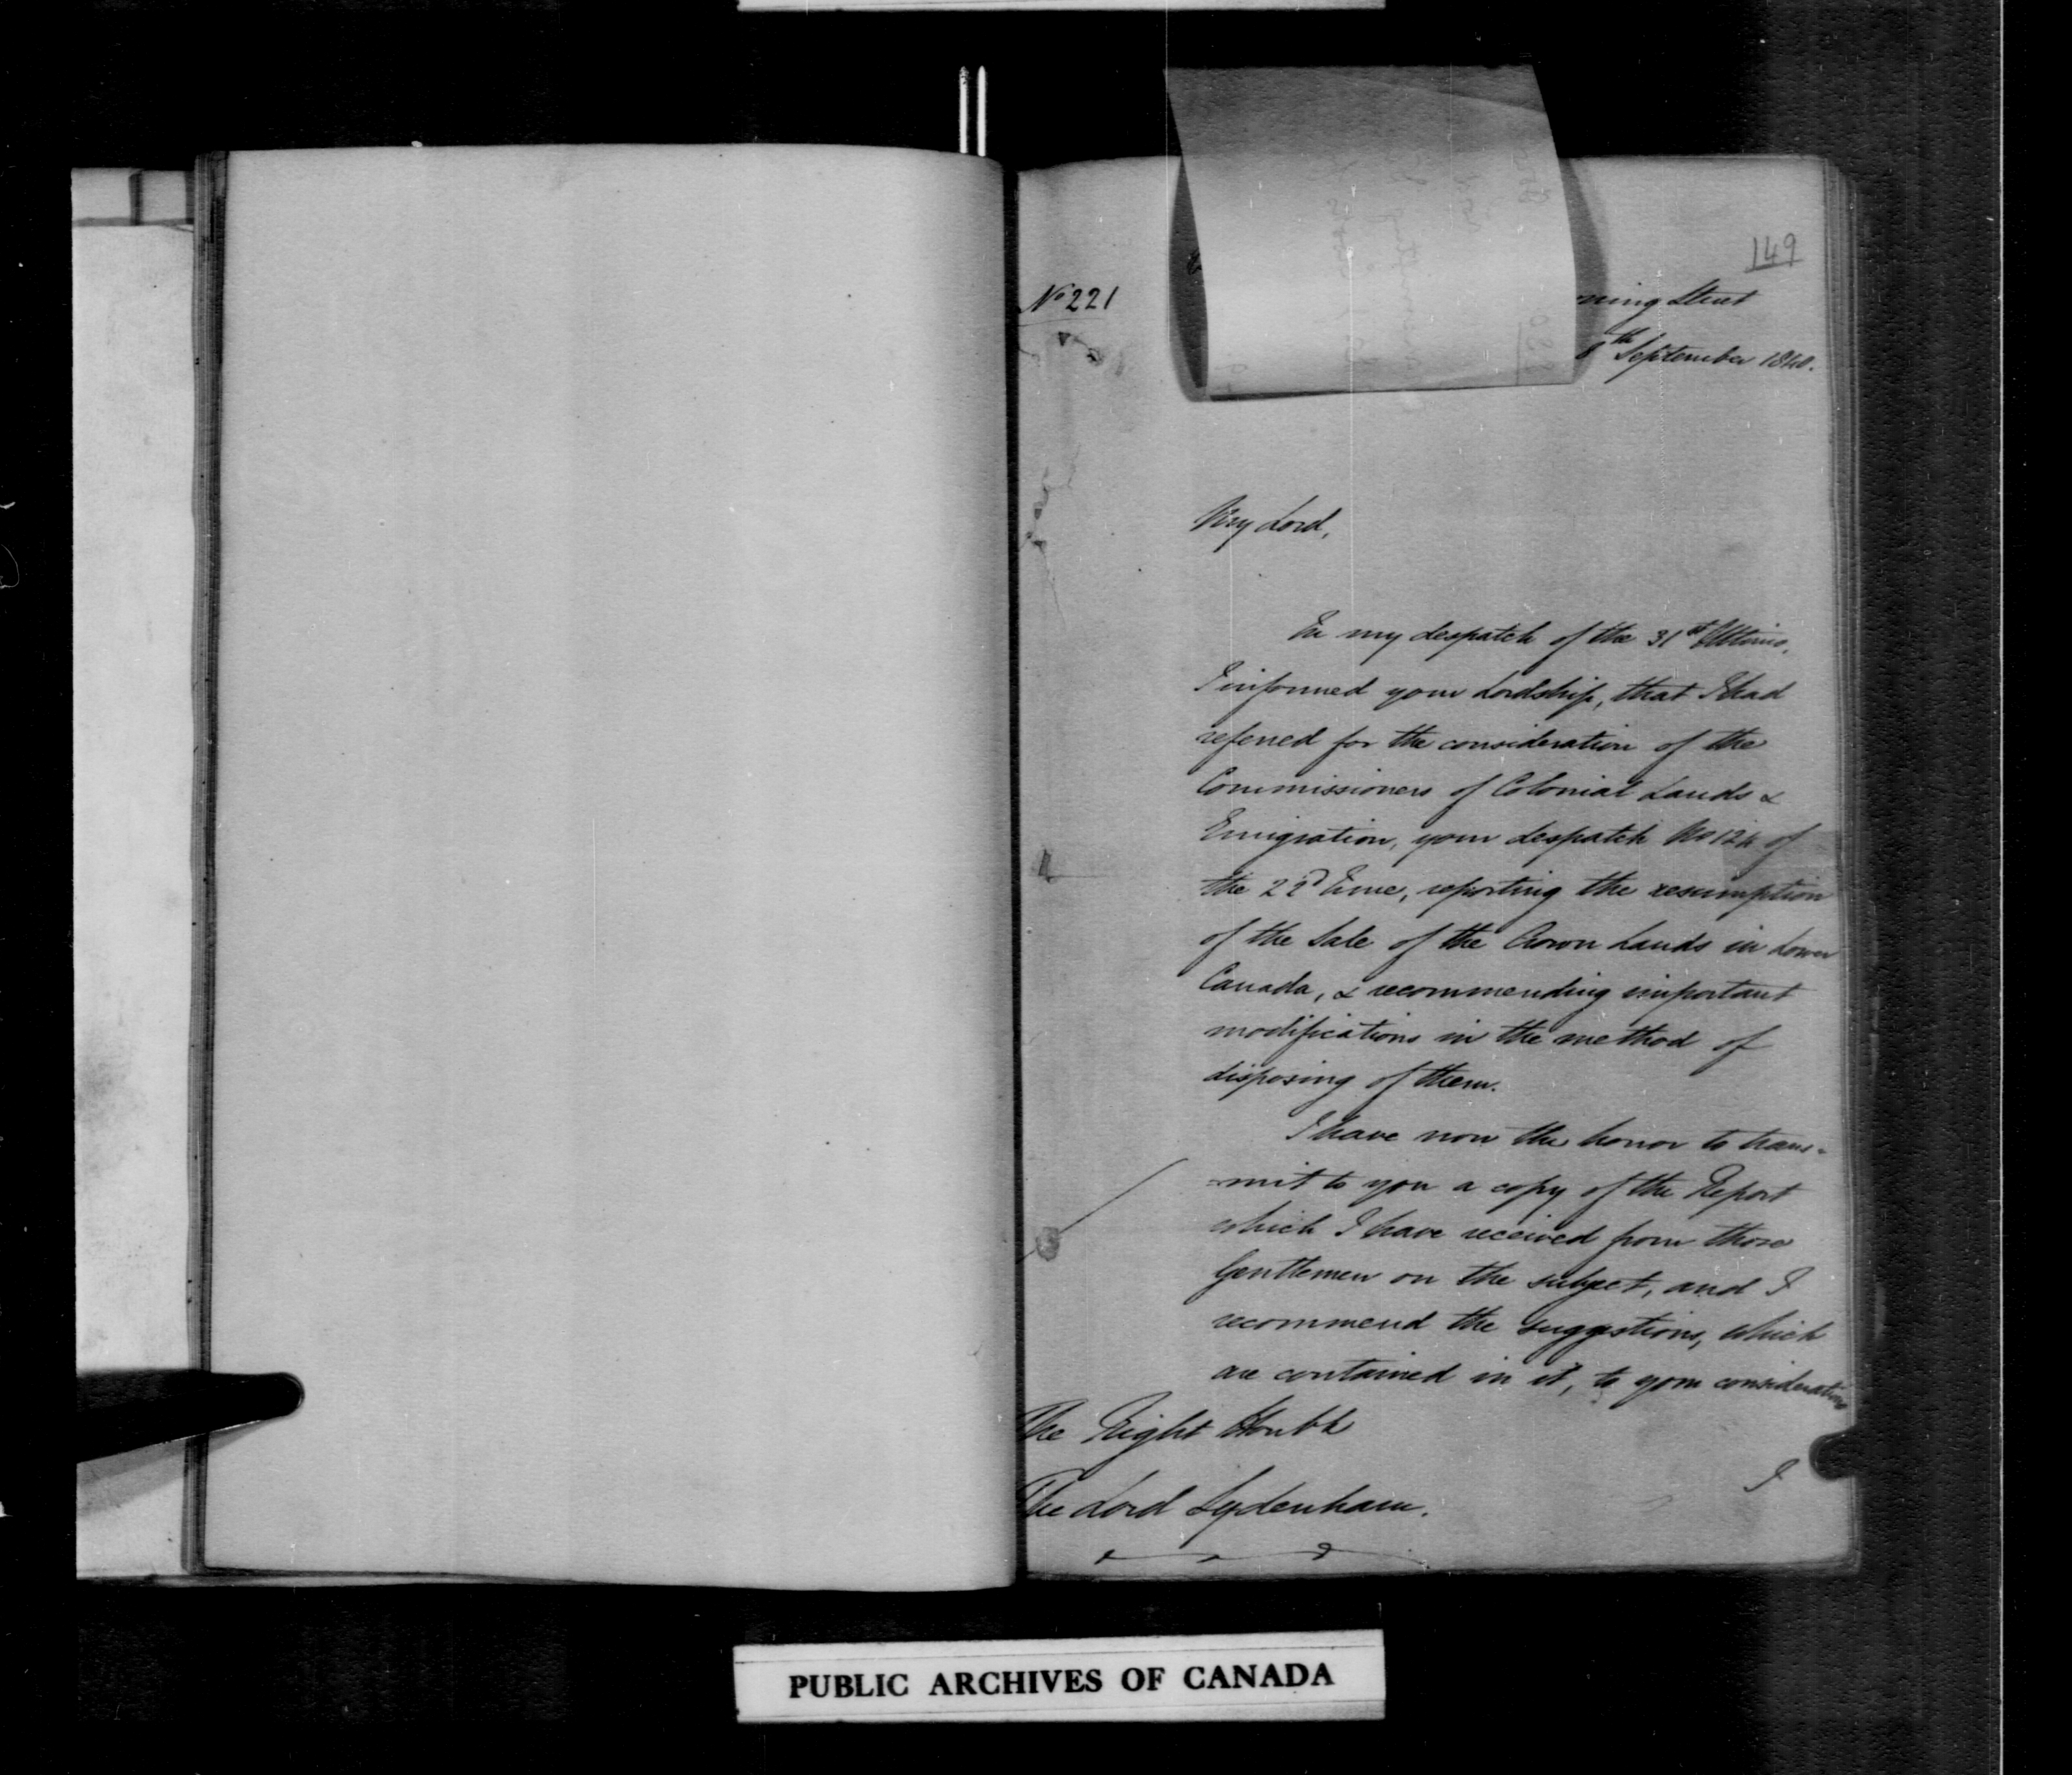 149
No 221
ning Street
8th September 1840.
My Lord,
In my despatch of the 31st Ultimo,
I informed your Lordship, that I had
referred for the consideration of the
Commissioners of Colonial Lands &
Emigration, your despatch No 124 of
the 22d June, reporting the resumption
of the Sale of the Crown Lands in Lower
Canada, & recommending important
modifications in the method of
disposing of them.
I have now the honor to trans-
-mit to you a copy of the Report
which I have received from those
Gentlemen on the subject, and I
recommend the suggestions, which
are contained in it, to your consideration
The Right Honble
The Lord Sydenham.
I
PUBLIC ARCHIVES OF CANADA